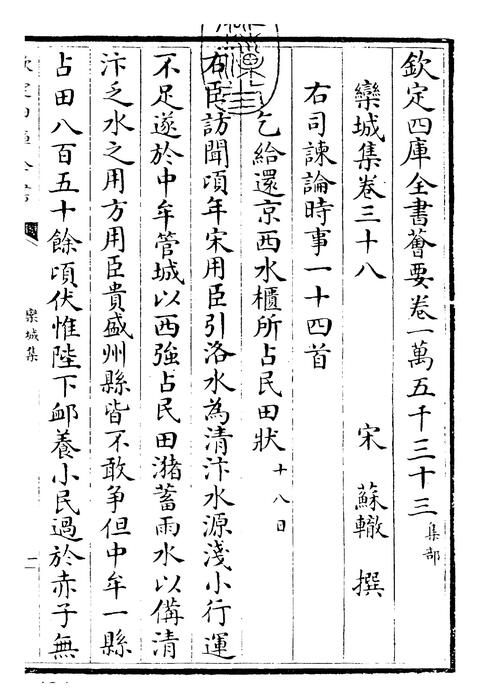 欽定四庫全書薈要卷一萬五千三十三 集部
欒城集卷三十八 宋 蘇轍 撰
右司諫論時事一十四首
乞給還京西水櫃所占民田狀 十八日
右臣訪聞頃年宋用臣引洛水為清汴水源淺小行運
不足遂於中牟管城以西強占民田瀦蓄雨水以備清
汴乏水之用方用臣貴盛州縣皆不敢爭但中牟一縣
占田八百五十餘頃伏惟陛下卹養小民過於赤子無
欒城集
一